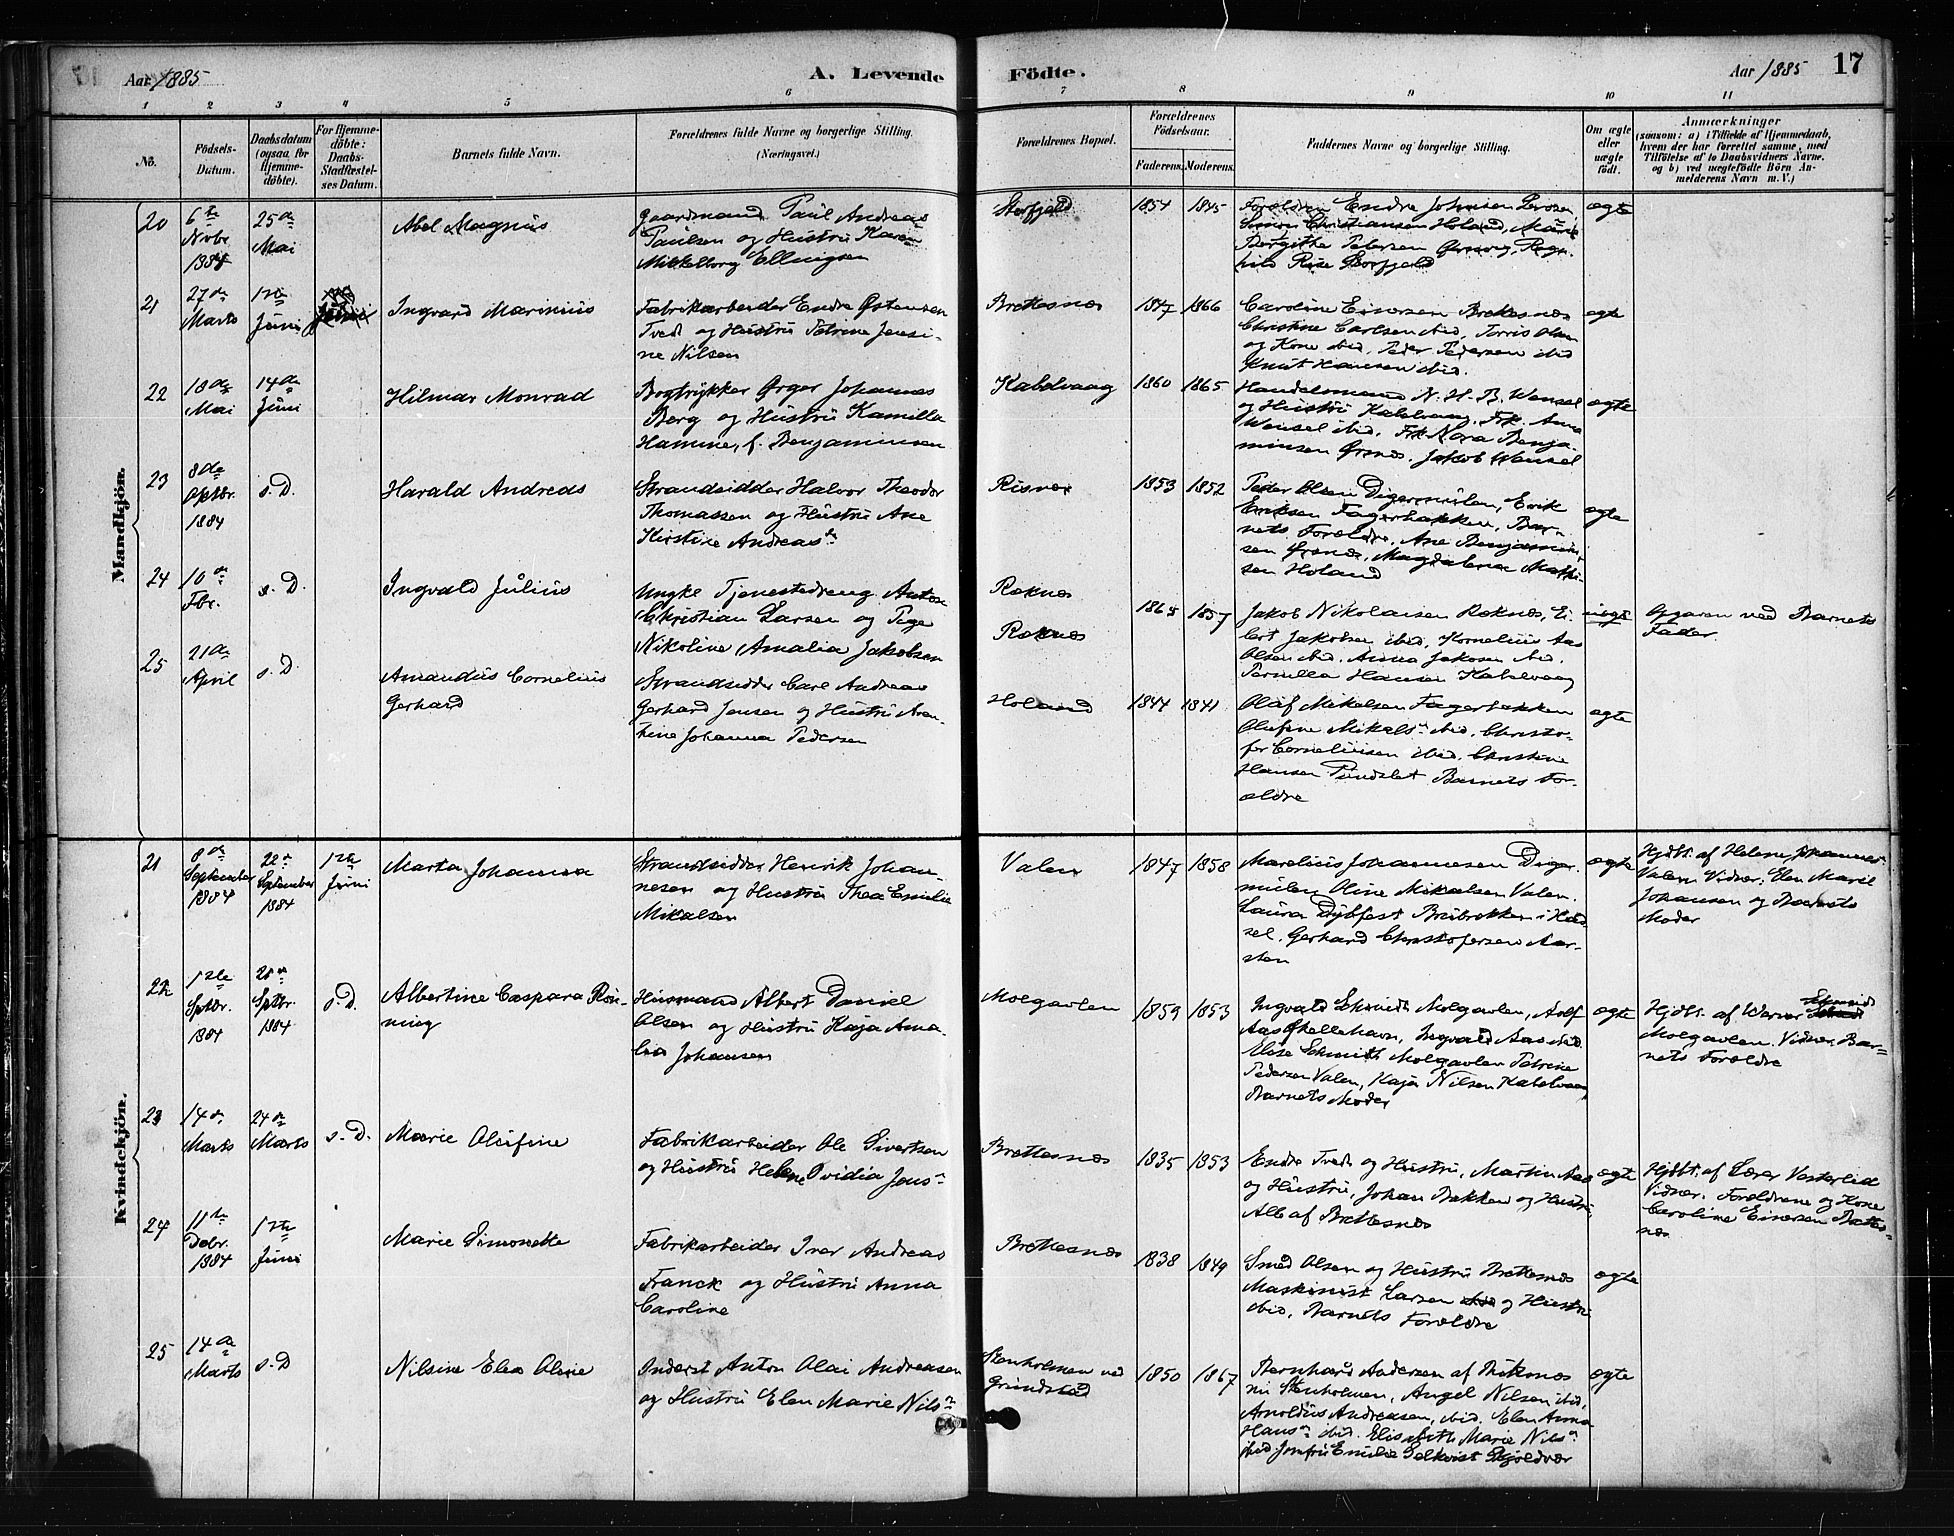 Aar 1885
A. Levende
Födte.
Aar 1885
17
1 2 3 4 5 6 7 8 9 10 11
No.
Födsels-Datum.
Daabsdatum (ogsaa for Hjemmedöbte).
For Hjemmedöbte: Daabs-Stadfæstelses Datum.
Barnets fulde Navn.
Forældrenes fulde Navne og borgerlige Stilling.
(Næringsvei.)
Forældrenes Bopæl.
Forældrenes Födselsaar.
Faderens. Moderens.
Faddernes Navne og borgerlige Stilling.
Om ægte eller uægte födt.
Anmærkninger
(saasom: a) i Tilfælde af Hjemmedaab,
hvem der har forrettet samme, med
Tilföielse af to Daabsvidners Navne.
og b) ved uægtefödte Börn Anmelderens Navn m. V.)
Mandkjön.
20
6te Novbr. 1884
25de Mai
Abel Magnus
Gaardmand Paul Andreas
Paulsen og Hustru Karen
Mikkelborg Ellingsen
Storfjeld
1854 1845
Forældrene Endre Johnsen
Simon Christiansen Holand, Marie
Bergithe Petersen Ørsnes, Ragnhild
Storfjeld
ægte
21
27de Marts
1ste Juni
Ingvard Marinius
Fabrikarbeider Endre Østensen
Tvedt og Hustru Petrine Jensine
Nilsen
Brettesnæs
1847 1866
Caroline Eiversen Brettesnæs
Christine Carlsen ibid, Torris Olsen
og Kone ibid, Peder Pedersen ibid
Knut Hansen ibid.
ægte
22
18de Mai
14de Juni
Hilmar Monrad
Bogtrykker Ørger Johannes
Berg og Hustru Kamilla
Hamine, f. Benjaminsen
Kabelvaag
1860 1865
Handelsmand N. H. B. Wensel
og Hustru Kabelvaag, Frk. Anna
Wensel ibid, Frk Nora Benjaminsen
Ørsnes. Jakob Wensel
ægte
23
8de Oktbr. 1884
s. D.
Harald Andreas
Strandsidder Halvor Theodor
Thomassen og Hustru Ane
Kirstine Andreasdr
Risvær
1853 1852
Peder Olsen Digermulen, Erik
Eriksen Fagerbakken, Barnets
Forældre, Ane Benjaminsen
Ørsnes, Magdalena Mathisen
Holand
ægte
24
10de Fbr.
s. D.
Ingvald Julius
Ungkl Tjenestedreng Anton
Christian Larsen og Pige
Nikoline Amalia Jakobsen
Røknæs
Røknæs
1865 1857
Jakob Nikolaisen Røknæs, Eilert
Jakobsen ibid, Kornelius Aas
Olsen ibid. Anna Jakosen ibid.
Pernilla Hansen Kabelvaag
uægte
Opgaven ved Barnets
Fader.
25
21de April
s. D.
Amandus Cornelius
Gerhard
Strandsidder Carl Andreas
Gerhard Jensen og Hustru Arentine
Johanna Pedersen
Holand
1844 1841
Olaf Mikelsen Fagerbakken
Olufine Mikelsdr ibid, Christofer
Corneliusen ibid. Christine
Hansen Pundslet Barnets Forældre
ægte
Kvindekjön.
21
8de September 1884
22de September 1884
1ste Juni
Marta Johanna
Strandsidder Henrik Johannesen
og Hustru Thea Emilie
Mikalsen
Valen
1847 1858
Marelius Johannesen Digermulen
Oline Mikalsen Valen.
Laura Dybfest Breibakken i Hadsel.
Gerhard Christofersen Aarsten
ægte
Hjdbt. af Helene Johannes
Valen Vidner: Elen Marie
Johansen og Barnets
Moder
22
12te Sptbr. 1884
28de Sptbr. 1884
s. D.
Albertine Caspara Rönning
Husmand Albert Daniel
Olsen og Hustru Kaja Amalia
Johansen
Molgavlen
1859 1853
Ingvald Schmidt Molgavlen, Adolf
Aas Skellehavn, Ingvald Aas ibid.
Elise Schmidt Molgavlen Petrine
Pedersen Valen, Kaja Nilsen Kabelvaag
Barnets Moder
ægte
Hjdbt. af Werner Schmidt
Molgavlen. Vidner Barnets
Forældre
23
14de Marts
24de Marts
s. D.
Marie Olufine
Fabrikarbeider Ole Sivertsen
og Hustru Helene Ovidia Jensdr
Brettesnæs
1835 1853
Endre Tvedt og Hustru, Martin Aas
og Hustru, Johan Bakken og Hustru,
Alle af Brettesnæs
ægte
Hjdbt. af Lærer Vesterlid
Vidner: Forældrene og Kone
Caroline Eiversen Brettesnæs
24
11te Debr. 1884
1ste Juni
Marie Simonette
Fabrikarbeider Iver Andreas
Franck og Hustru Anna
Caroline
Brettesnæs
1838 1849
Smed Olsen og Hustru Brettesnæs
Maskinist Larsen og Hustru
ibid, Barnets Forældre
ægte
25
14de Marts
s. D
Nilsine Elea Oline
Inderst Anton Olai Andreasen
og Hustru Elen Marie Nilsdr
Stenholmen ved
Grundstad
1850 1867
Bernhard Andersen af
nu Stenholmen, Angel Nilsen ibid,
Arnoldus Andreasen, ibid. Elen Anna
Hansdr ibid. Elisabeth Marie Nilsdr
ibid Jomfru Emilie Selkvist Skjoldvær
ægte